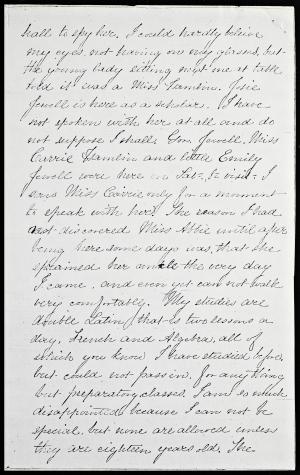 hall to spy her. I could hardly believe
my eyes, not having on my glasses, but
the young lady sitting next me at table
told it was a Miss Hamlin. Josie
Jewell is here as a scholar. I have
not spoken with her at all and do
not suppose I shall. Gov. Jewell, Miss
Carrie Hamlin and little Emily
Jewell were here on Sat. to visit. I
saw Miss Carrie only for a moment
to speak with her. The reason I had
not discovered Miss Abbie until after
being here some days was, that she
sprained her ankle the very day
I came, and even yet can not walk
very comfortably. My studies are
double Latin, that is two lessons a
day, French and Algebra, all of
which you know I have studied before,
but could not pass in, for any thing
but preparatory classes. I am so much
disappointed because I can not be
special, but none are allowed unless
they are eighteen years old. The